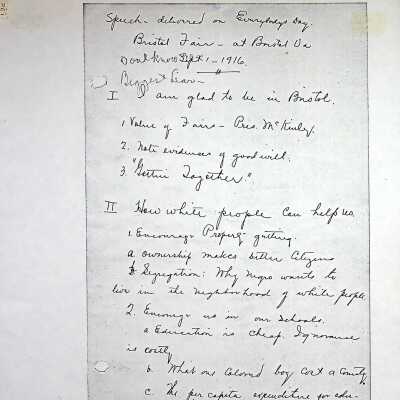 Speech - delivered on Everybodys Day.
Bristol Fair - at Bristol Va
Dont Know Sept. 1 - 1916.
Biggest Liar -
I I am glad to be in Bristol.
1 Value of Fairs - Pres McKinley.
2. Note evidences of good will.
3. "Gettin Together".
II How white people can help us
1. Encourage Property getting.
a ownership makes better Citizens
b Segregation: Why Negro wants to
live in the neighborhood of white people.
2. Encourage us in our Schools.
a Education is cheap. Ignorance
is costly
b. What one Colored boy cost a County.
c. The per capita expenditure for edu-